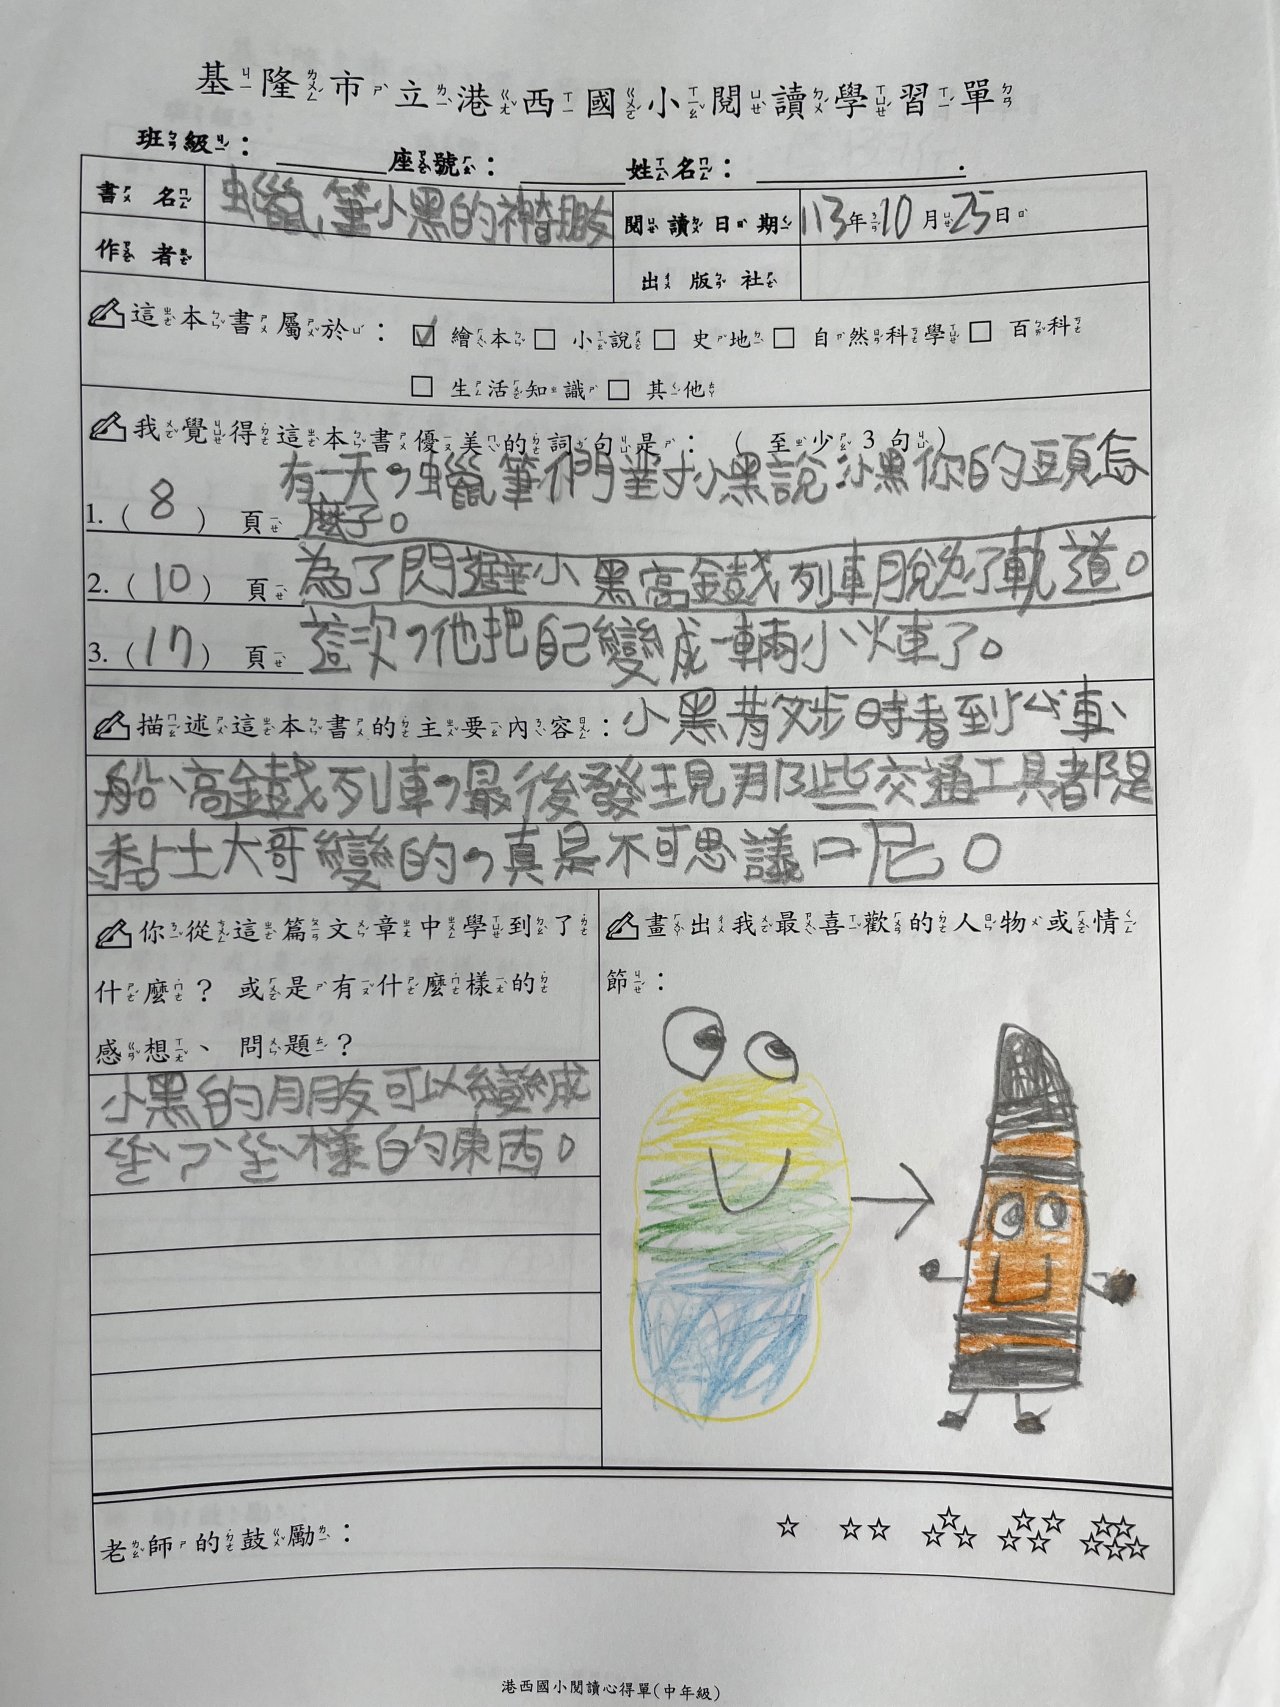 基隆市立港西國小閱讀學習單
班級： 座號： 姓名：
書名 蠟筆小黑的神奇朋友 閱讀日期 113年10月25日
作者 出版社
這本書屬於：☑繪本□小說□史地□自然科學□百科
□生活知識□其他
我覺得這本書優美的詞句是：（至少3句）
有一天，蠟筆們對小黑說：小黑你的頭怎
1.（8）頁 麼了。
2.（10）頁 為了閃避小黑高鐵列車脫了軌道。
3.（17）頁 這次，他把自己變成一輛小火車了。
描述這本書的主要內容：小黑散步時看到火車、
船、高鐵列車，最後發現那些交通工具都是
黏土大哥變的，真是不可思議呢。
你從這篇文章中學到了
什麼？或是有什麼樣的
感想、問題？
小黑的朋友可以變成
ㄓㄜˋㄓㄜˋ樣的東西。
畫出我最喜歡的人物或情
節：
老師的鼓勵： ☆ ☆☆ ☆☆☆ ☆☆☆☆ ☆☆☆☆☆
港西國小閱讀心得單(中年級)